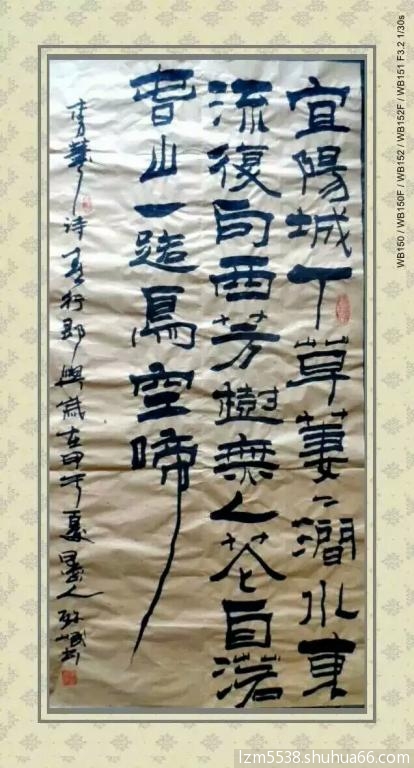 宜陽城下草萋〻澗水東
流復向西芳樹無人花自落
春山一路鳥空啼
李華诗春行即興歲在甲午夏墨人
WB150 / WB150F / WB152 / WB152F / WB151 F3.2 1/30s
lzm5538.shuhua66.com